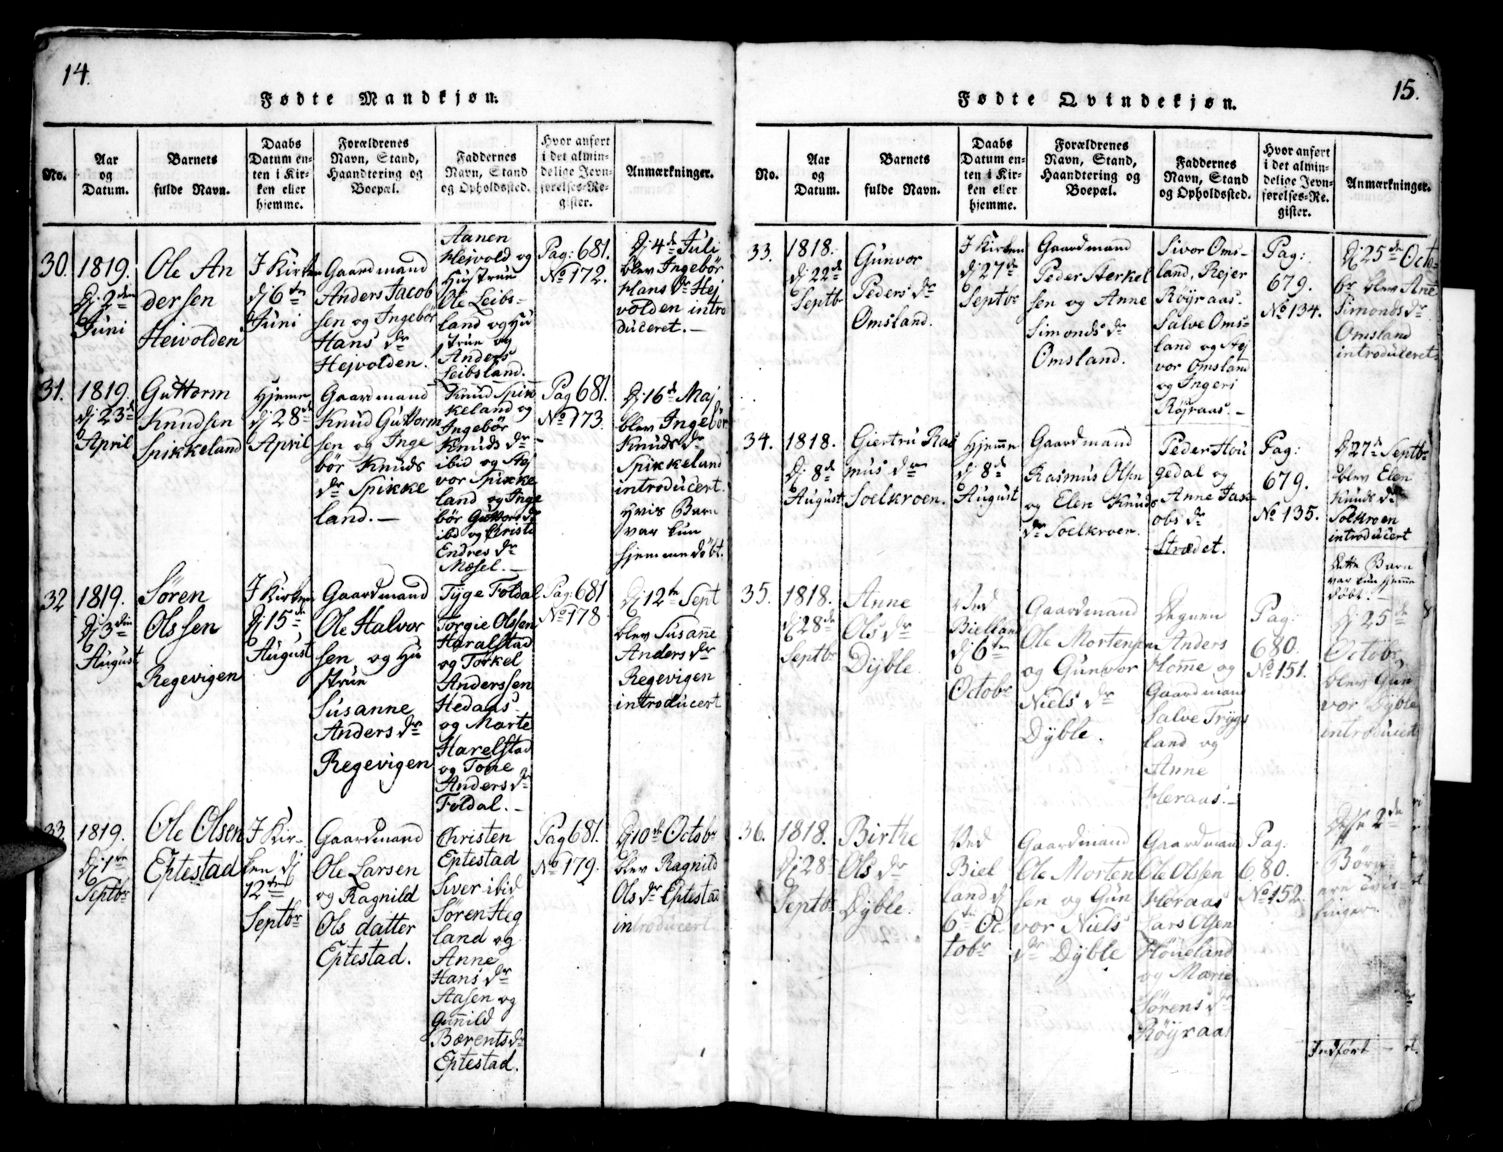 14.
Fødte Mandkjøn.
No.
Aar
og
Datum.
Barnets
fulde Navn.
Daabs
Datum en-
ten i Kir-
ken eller
hjemme.
Forældrenes
Navn, Stand,
Haandtering og
Boepæl.
Faddernes
Navn, Stand
og Opholdssted.
Hvor anført
i det almin-
delige Jevn-
førelses-Re-
gister.
Anmærkninger.
30.
1819.
Dj 2den
Juni
Ole An
dersen
Heivolden
I Kirken
dj 6te
Juni
Gaardmand
Anders Jacob
sen og Ingebør
Hans dr
Hejvolden.
Aanen
Hejvold og
Hustrue
Ole Leibs-
land og Hu
strue og
Anders
Leibsland.
Pag: 681.
No 172.
Dj 4de Juli
blev Ingebør
Hans Dr Hej
volden intro
duceret.
31.
1819.
dj 23de
April
Guttorm
Knudsen
Spikkeland
Hjemme
dj 28de
April
Gaardmand
Knud Guttorm
sen og Inge
bør Knuds
dr Spikke
land.
Knud Spik
keland og
Ingebør
Knuds dr
ibid og Stej
vor Spikke
land og Inge
bør Guttors dr
ibid og Christi
Endres dr
Mæsel.
Pag 681.
No 173.
Dj 16de Maj
blev Ingebør
Knuds dr
Spikkeland
introducert.
Hvis Barn
var kun
hjemmedøbt.
32
1819.
Dj 3die
August
Søren
Olssen
Regevigen
I Kirken
Dj 15de
August
Gaardmand
Ole Halvor
sen og Hu
strue
Susanne
Anders dr
Regevigen
Tyge Foldal
Torgie Olssen
Haralstad
og Torkel
Anderssen
Hedaas
og Marte
Harelstad
og Tone
Anders dr
Foldal.
Pag: 681
No 178
Dj 12te Sept
blev Susanne
Anders dr
Regevigen
introducert
33
1819.
Dj 1ste
Septbr
Ole Olsen
Eptestad
I Kir-
ken dj
12te
Septbr
Gaardmand
Ole Larsen
og Ragnild
Ols datter
Eptestad.
Christen
Eptestad
Siver ibid
Søren Heg
land og
Anne
Hans dr
Aasen og
Gunild
Bærents dr
Eptestad.
Pag 681.
No 179.
Dj 10de Octobr
blev Ragnild
Ols dr Eptestad
introducert.
15.
Fødte Qvindekjøn.
No.
Aar
og
Datum.
Barnets
fulde Navn.
Daabs
Datum en-
ten i Kir-
ken eller
hjemme.
Forældrenes
Navn, Stand,
Haandtering og
Boepæl.
Faddernes
Navn, Stand
og Opholdssted.
Hvor anført
i det almin-
delige Jevn-
førelses-Re-
gister.
Anmærkninger.
33.
1818.
dj 22de
Septbr
Gunvor
Peders dr
Omsland.
I Kirken
dj 27de
Septbr
Gaardmand
Peder Sterkel
sen og Anne
Simonds dr
Omsland.
Sivor Oms-
land, Rejer
Røjraas.
Salve Oms-
land og Stej
vor Omsland
og Ingeri
Røjraas.
Pag:
679.
No 134.
Dj 25de Octo-
br blev Anne
Simonds dr
Omsland
introduceret
34.
1818.
Dj 8de
August
Giertru Ras
mus dr
Soelkroen.
Hjemme
dj 8de
August
Gaardmand
Rasmus Olsen
og Elen Knuds
dr Soelkroen.
Peder Hou
gedal og
Anne Jac
obs dr
Strædet.
Pag:
679.
No 135.
Dj 27de Septbr
blev Elen
Knuds dr
Solkroen
introducert
Dette Barn
var kun hjemme
døbt.
35.
1818.
dj 28de
Septbr
Anne
Ols dr
Dyble.
Ved
Bielland
dj 6te
Octobr
Gaardmand
Ole Mortensen
og Gunvor
Niels dr
Dyble.
Degnen
Anders
Homme og
Gaardmand
Salve Trygs
land og
Anne
Heraas.
Pag:
680.
No 151.
Dj 25de
Octobr
blev Gun
vor Dyble
introducert
36.
1818.
Dj 28
Septbr
Birthe
Ols dr
Dyble.
Ved
Biel
land dj
6te Oc
tobr
Gaardmand
Ole Morten
sen og Gun
vor Niels
dr Dyble
Gaardmand
Ole Olssen
Heraas
Lars Olsen
Høveland
og Marte
Sørens dr
Røjraas
Pag:
680.
No 152.
Disse 2de
Børn
ere Tvil-
linger.
Indført